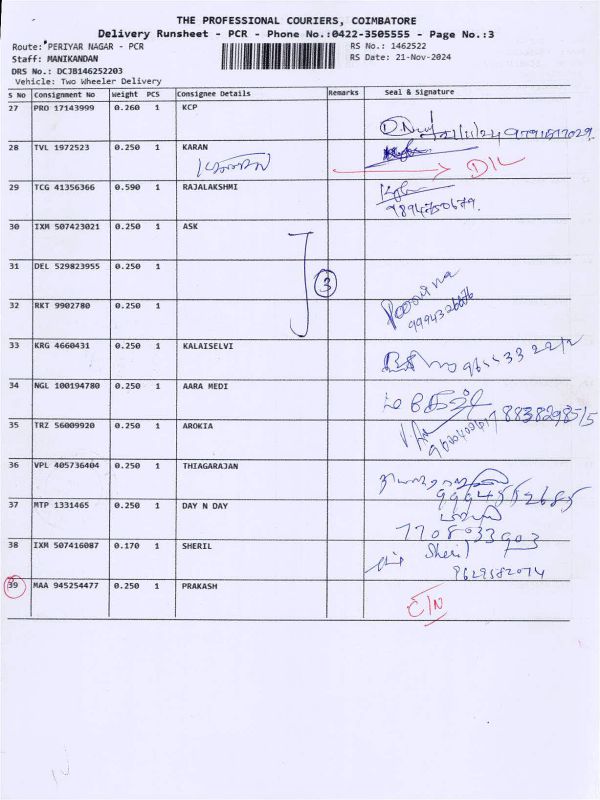 THE PROFESSIONAL COURIERS, COIMBATORE
Delivery Runsheet - PCR - Phone No.:0422-3505555 - Page No.:3
Route: PERIYAR NAGAR - PCR
RS No.: 1462522
Staff: MANIKANDAN
RS Date: 21-Nov-2024
DRS No.: DCJB146252203
Vehicle: Two Wheeler Delivery
S No Consignment No Weight PCS Consignee Details Remarks Seal & Signature
27 PRO 17143999 0.260 1 KCP
21/11/24 9791877029
28 TVL 1972523 0.250 1 KARAN
D/L
29 TCG 41356366 0.590 1 RAJALAKSHMI
9894750679.
30 IXM 507423021 0.250 1 ASK
31 DEL 529823955 0.250 1
3
32 RKT 9902780 0.250 1
33 KRG 4660431 0.250 1 KALAISELVI
34 NGL 100194780 0.250 1 AARA MEDI
35 TRZ 56009920 0.250 1 AROKIA
36 VPL 405736404 0.250 1 THIAGARAJAN
37 MTP 1331465 0.250 1 DAY N DAY
7708033903
38 IXM 507416087 0.170 1 SHERIL
Sheril
9629582074
39 MAA 945254477 0.250 1 PRAKASH
C/N